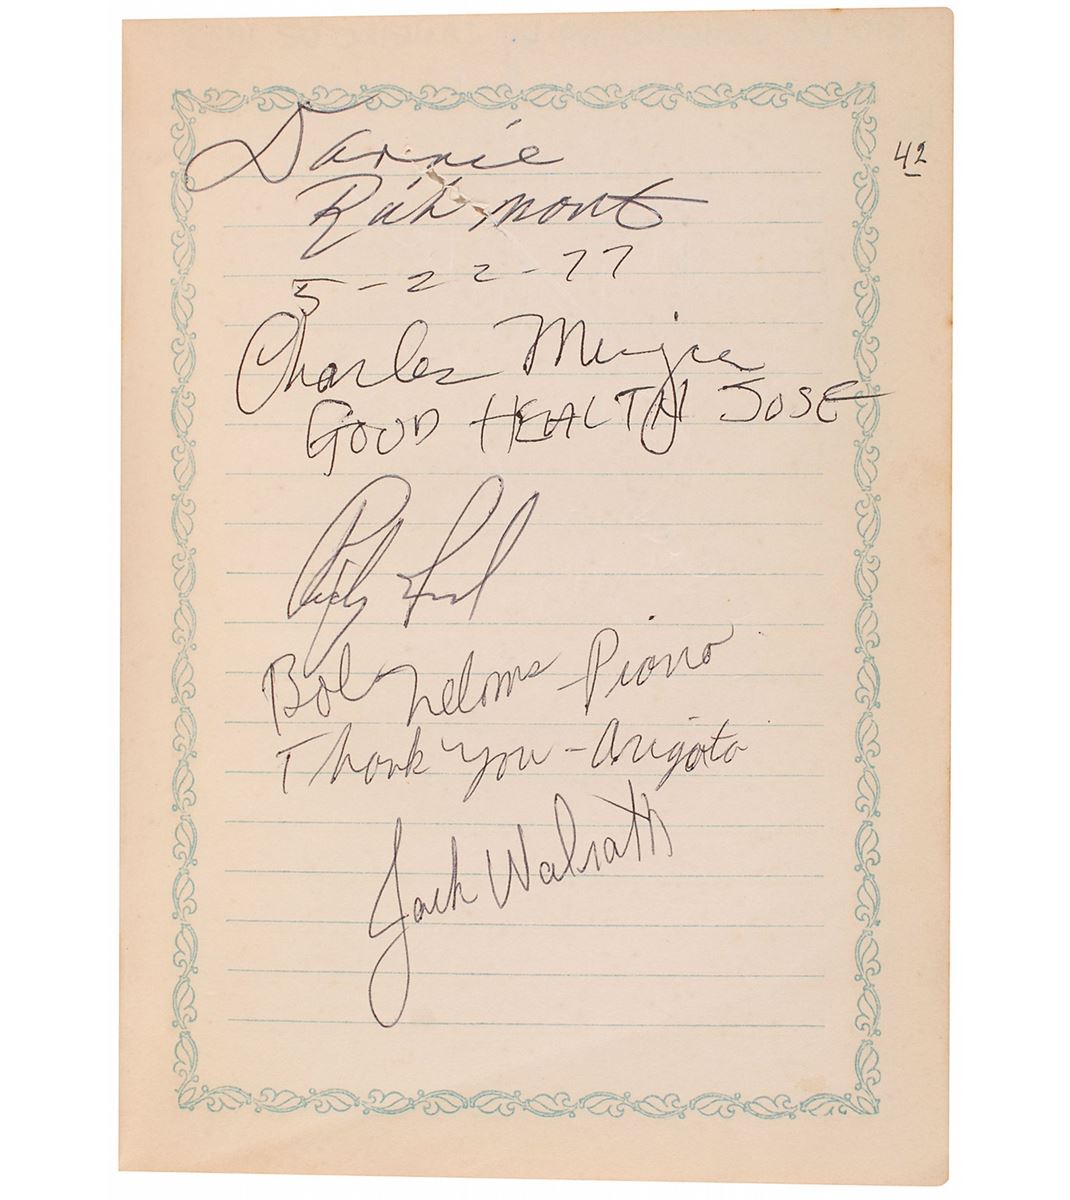 Dannie
Richmond
5-22-77
42
Charles Mingus
GOOD HEALTH JOSE
Ricky Ford
Bob Neloms Piano
Thank you - Arigato
Jack Walrath